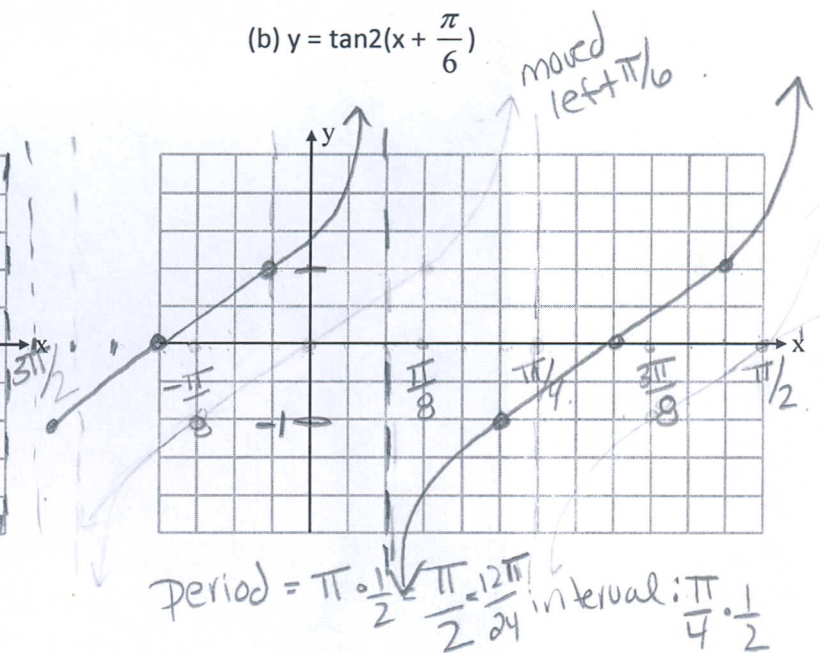 (b) y = tan2(x + π/6)
moved
left π/6
y
x
x
3π/2
-π/8
π/8
π/4
3π/8
π/2
-1
period = π · 1/2 = π/2 = 12π/24 interval: π/4 · 1/2